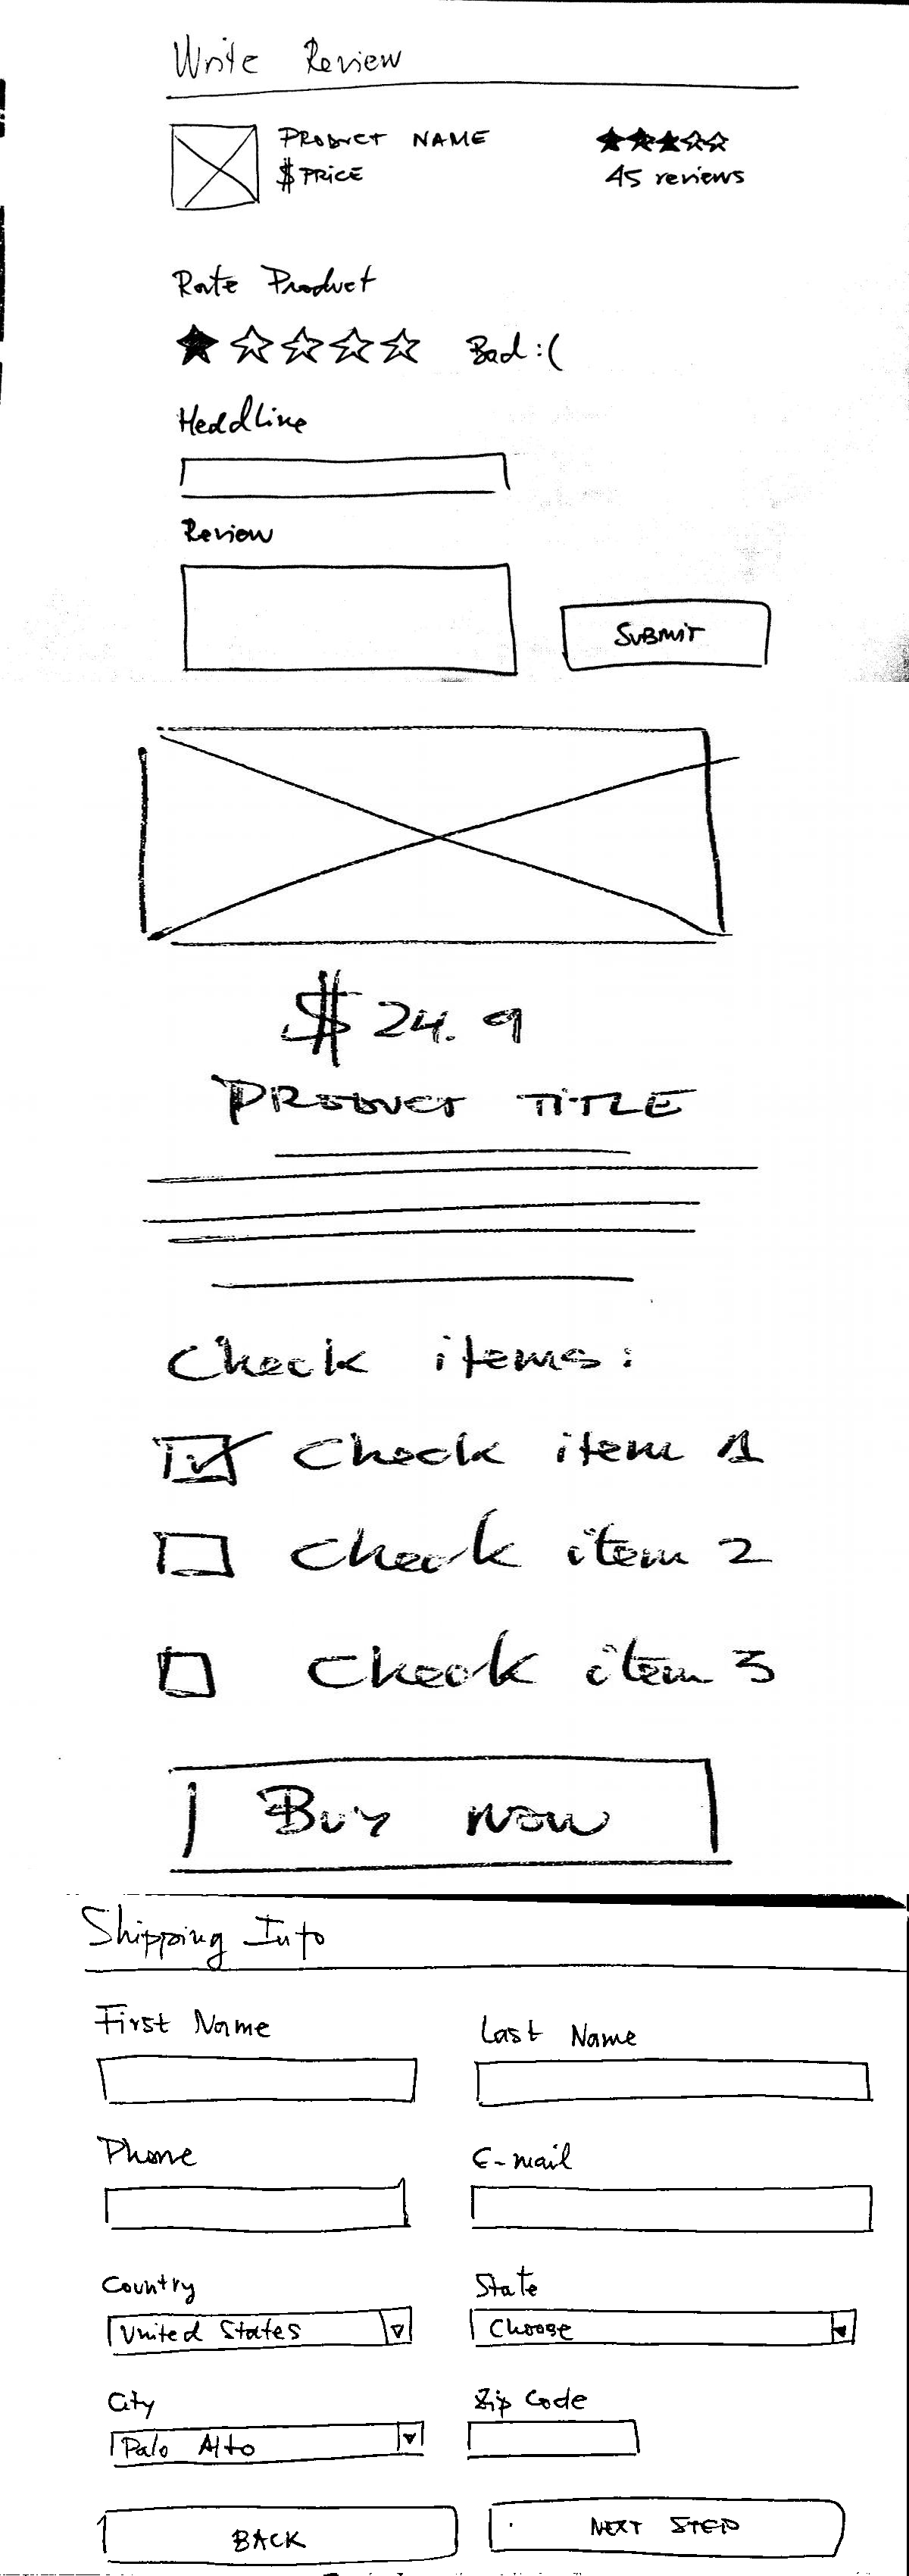 Write Review
PRODUCT NAME
$ PRICE
45 reviews
Rate Product
Bad :(
Headline
Review
SUBMIT
$ 24.9
PRODUCT TITLE
Check items:
Check item 1
Check item 2
Check item 3
Buy now
Shipping Info
First Name Last Name
Phone E-mail
Country State
United States Choose
City Zip Code
Palo Alto
BACK NEXT STEP